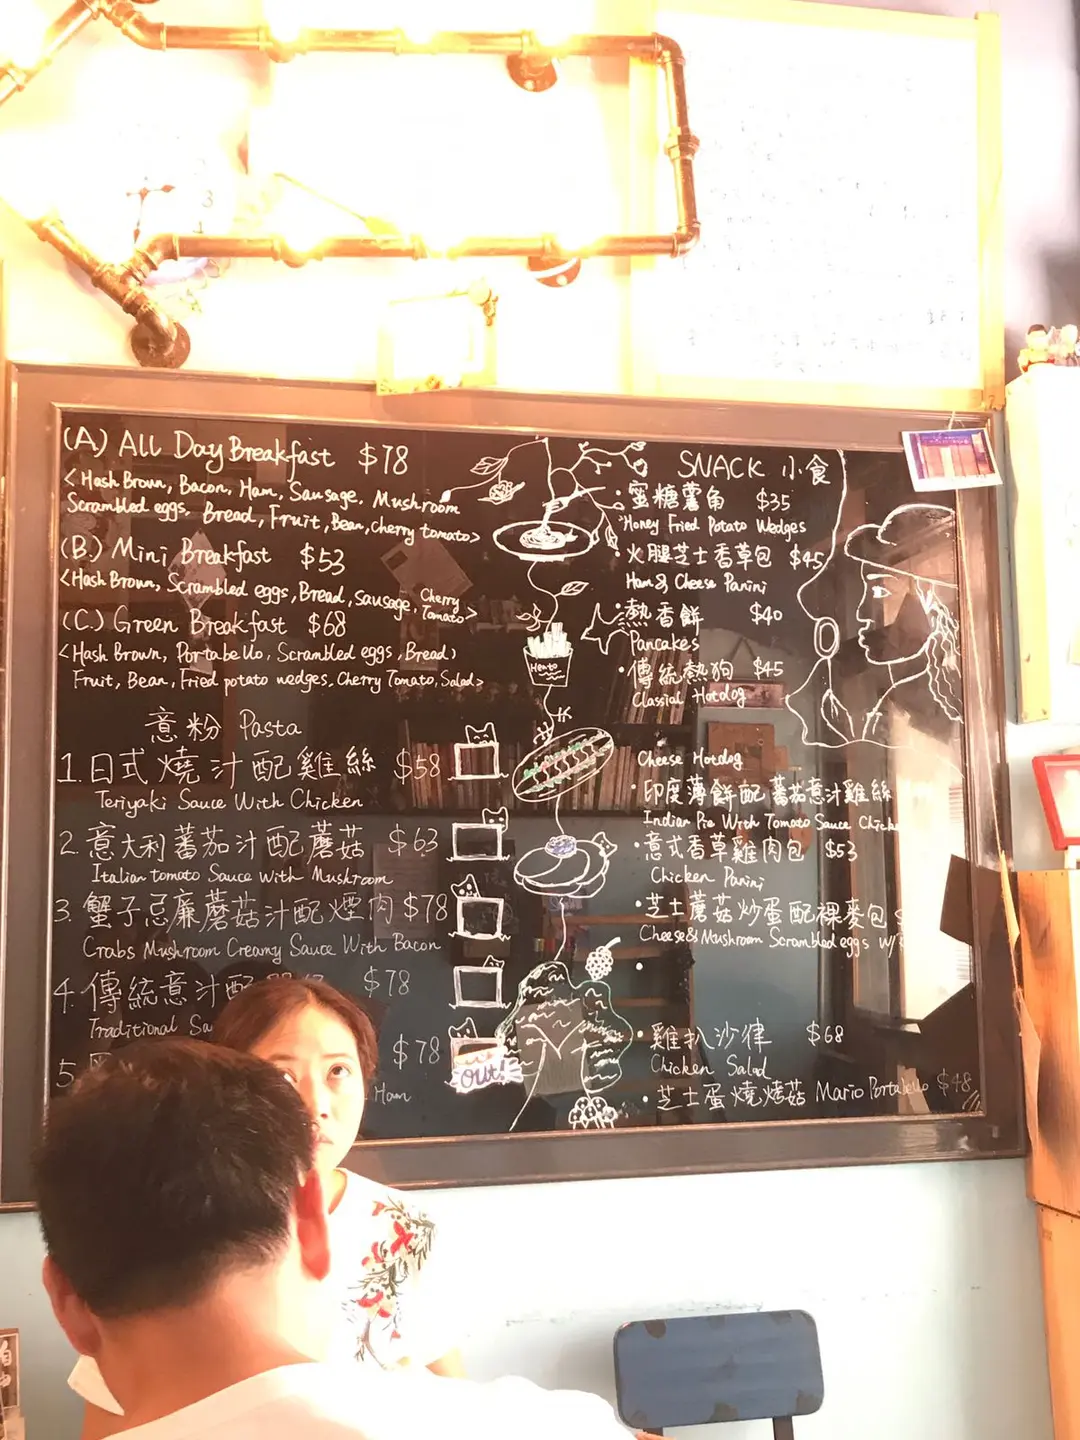 (A) All Day Breakfast $78
<Hash Brown, Bacon, Ham, Sausage, Mushroom
Scrambled eggs, Bread, Fruit, Bean, cherry tomato>
(B.) Mini Breakfast $53
<Hash Brown, Scrambled eggs, Bread, Sausage, Cherry Tomato>
(C.) Green Breakfast $68
<Hash Brown, Portabello, Scrambled eggs, Bread,
Fruit, Bean, Fried potato wedges, Cherry Tomato, Salad>
意粉 Pasta
1. 日式燒汁配雞絲 $58
Teriyaki Sauce With Chicken
2. 意大利蕃茄汁配蘑菇 $63
Italian tomato Sauce With Mushroom
3. 蟹子忌廉蘑菇汁配煙肉 $78
Crabs Mushroom Creamy Sauce With Bacon
4. 傳統意汁配 $78
Traditional
5. $78
Ham
out!
SNACK 小食
·蜜糖薯角 $35
Honey Fried Potato Wedges
·火腿芝士香草包 $45
Ham & Cheese Panini
·熱香餅 $40
Pancakes
·傳統熱狗 $45
Classial Hotdog
Cheese Hotdog
·印度薄餅配蕃茄意汁雞絲
Indian Pie With Tomato Sauce
·意式香草雞肉包 $53
Chicken Panini
·芝士蘑菇炒蛋配裸麥包
Cheese & Mushroom Scrambled eggs w/
·
·雞扒沙律 $68
Chicken Salad
·芝士蛋燒烤菇 Mario Portabello $48